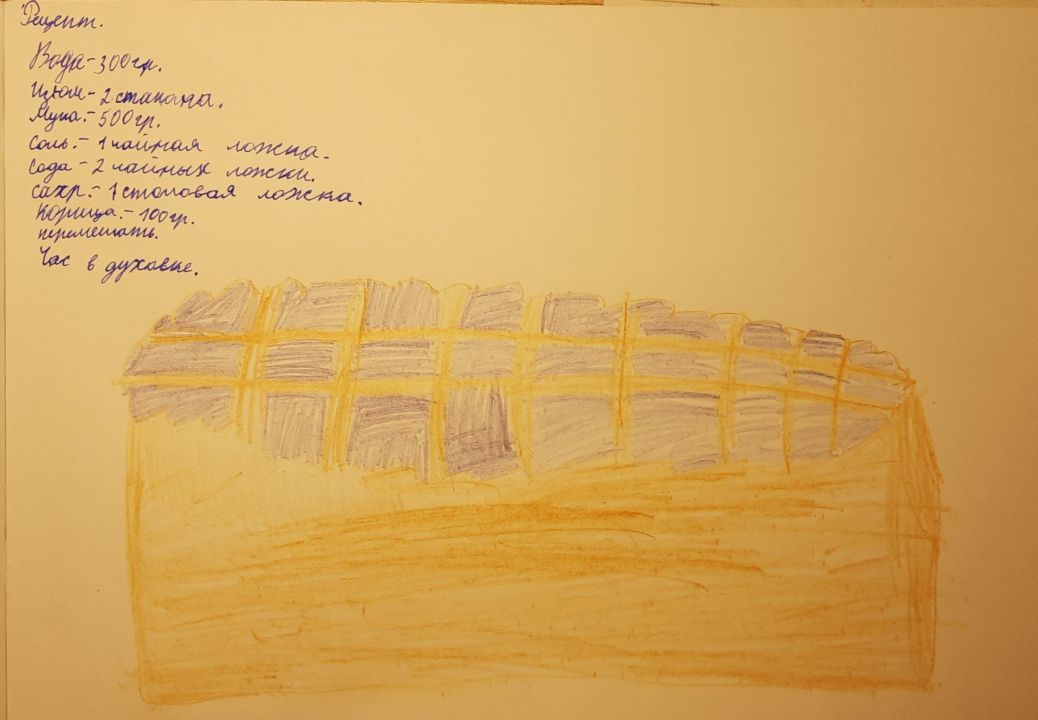 Рецепт.
Вода - 300гр.
Изюм - 2 стакана.
Мука. - 500гр.
Соль. - 1 чайная ложка.
Сода - 2 чайных ложки.
Сахр. - 1 столовая ложка.
Корица. - 100гр.
перемешать.
Час в духовке.